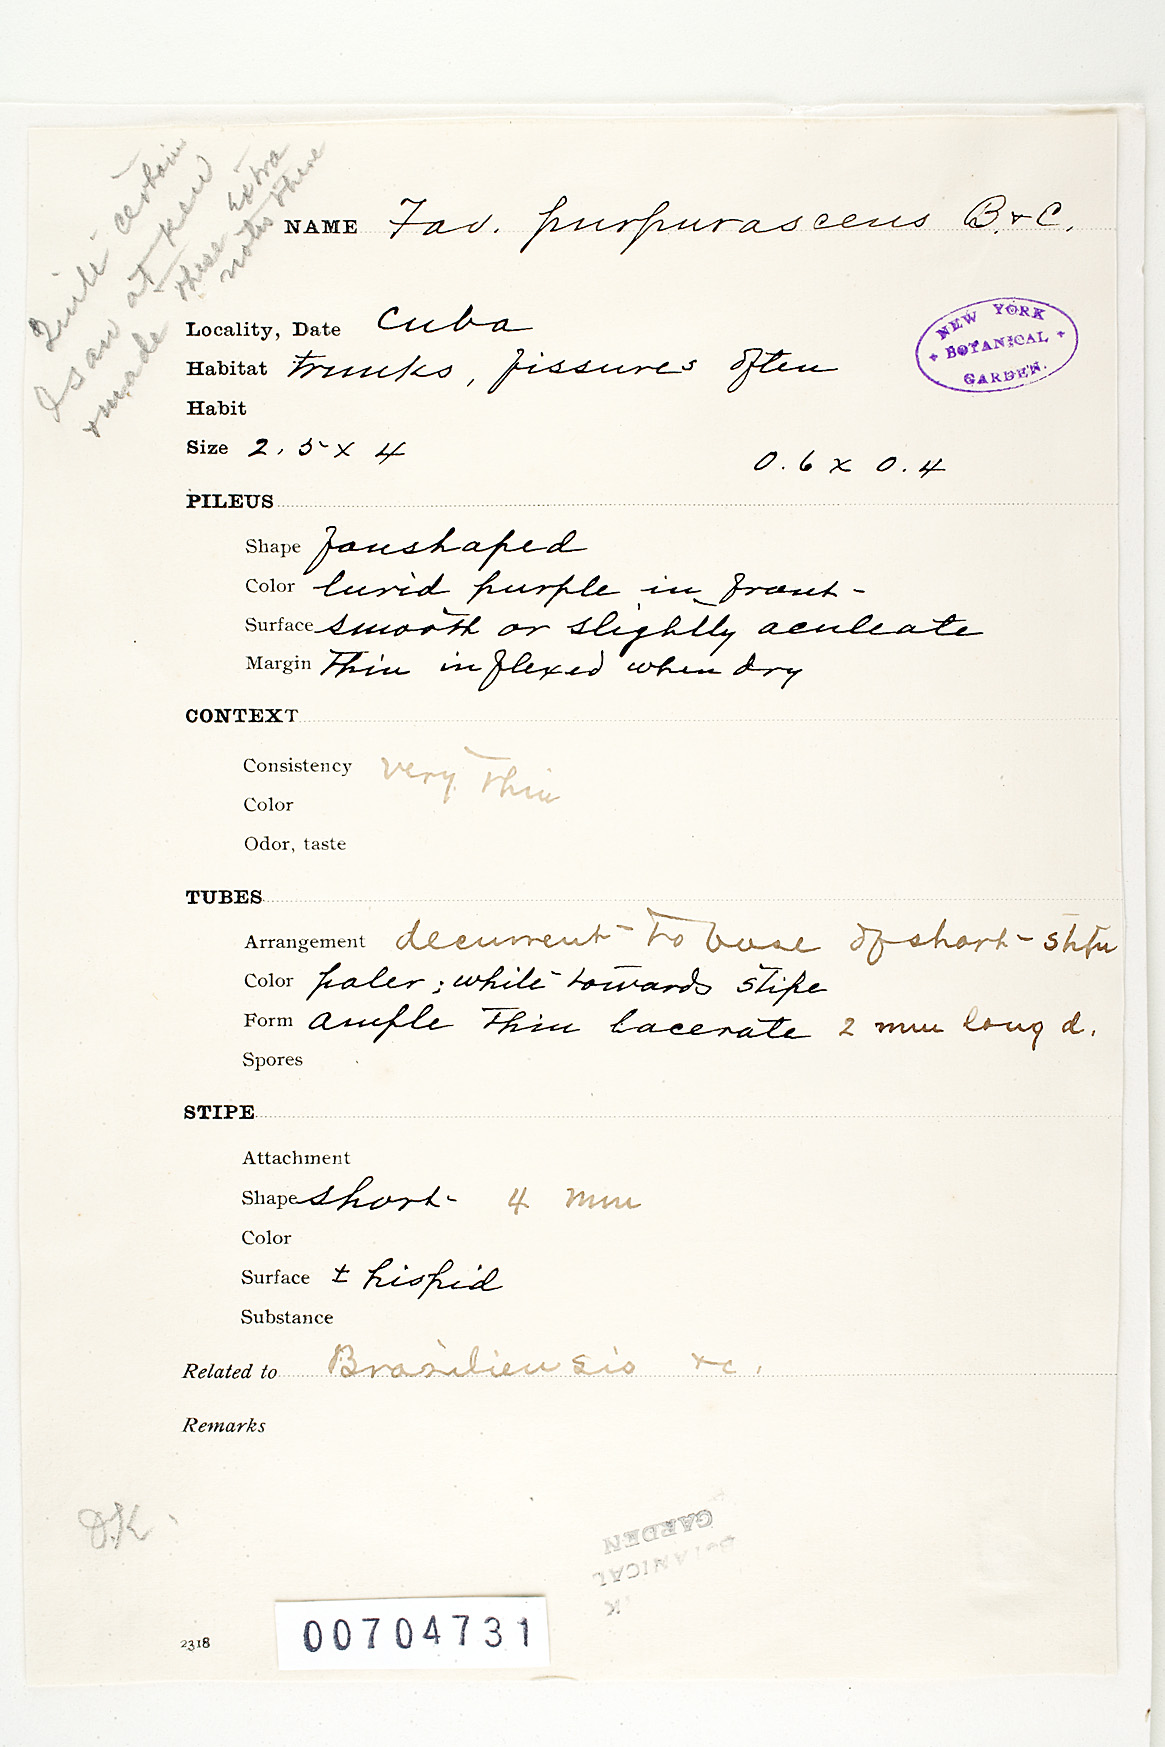 Quite certain
I saw at Kew
& made these extra
notes there
NAME Fav. purpurascens B. & C.
Locality, Date Cuba
NEW YORK
BOTANICAL
GARDEN.
Habitat trunks, fissures often
Habit
Size 2.5 x 4
0.6 x 0.4
PILEUS
Shape fanshaped
Color lurid purple in front
Surface smooth or slightly aculeate
Margin thin inflexed when dry
CONTEXT
Consistency very thin
Color
Odor, taste
TUBES
Arrangement decurrent to base of short stipe
Color paler; white towards stipe
Form ample thin lacerate 2 mm long d.
Spores
STIPE
Attachment
Shape short 4 mm
Color
Surface ± hispid
Substance
Related to Brasiliensis &c.
Remarks
O.K.
GARDEN
BOTANICAL
K
2318
00704731